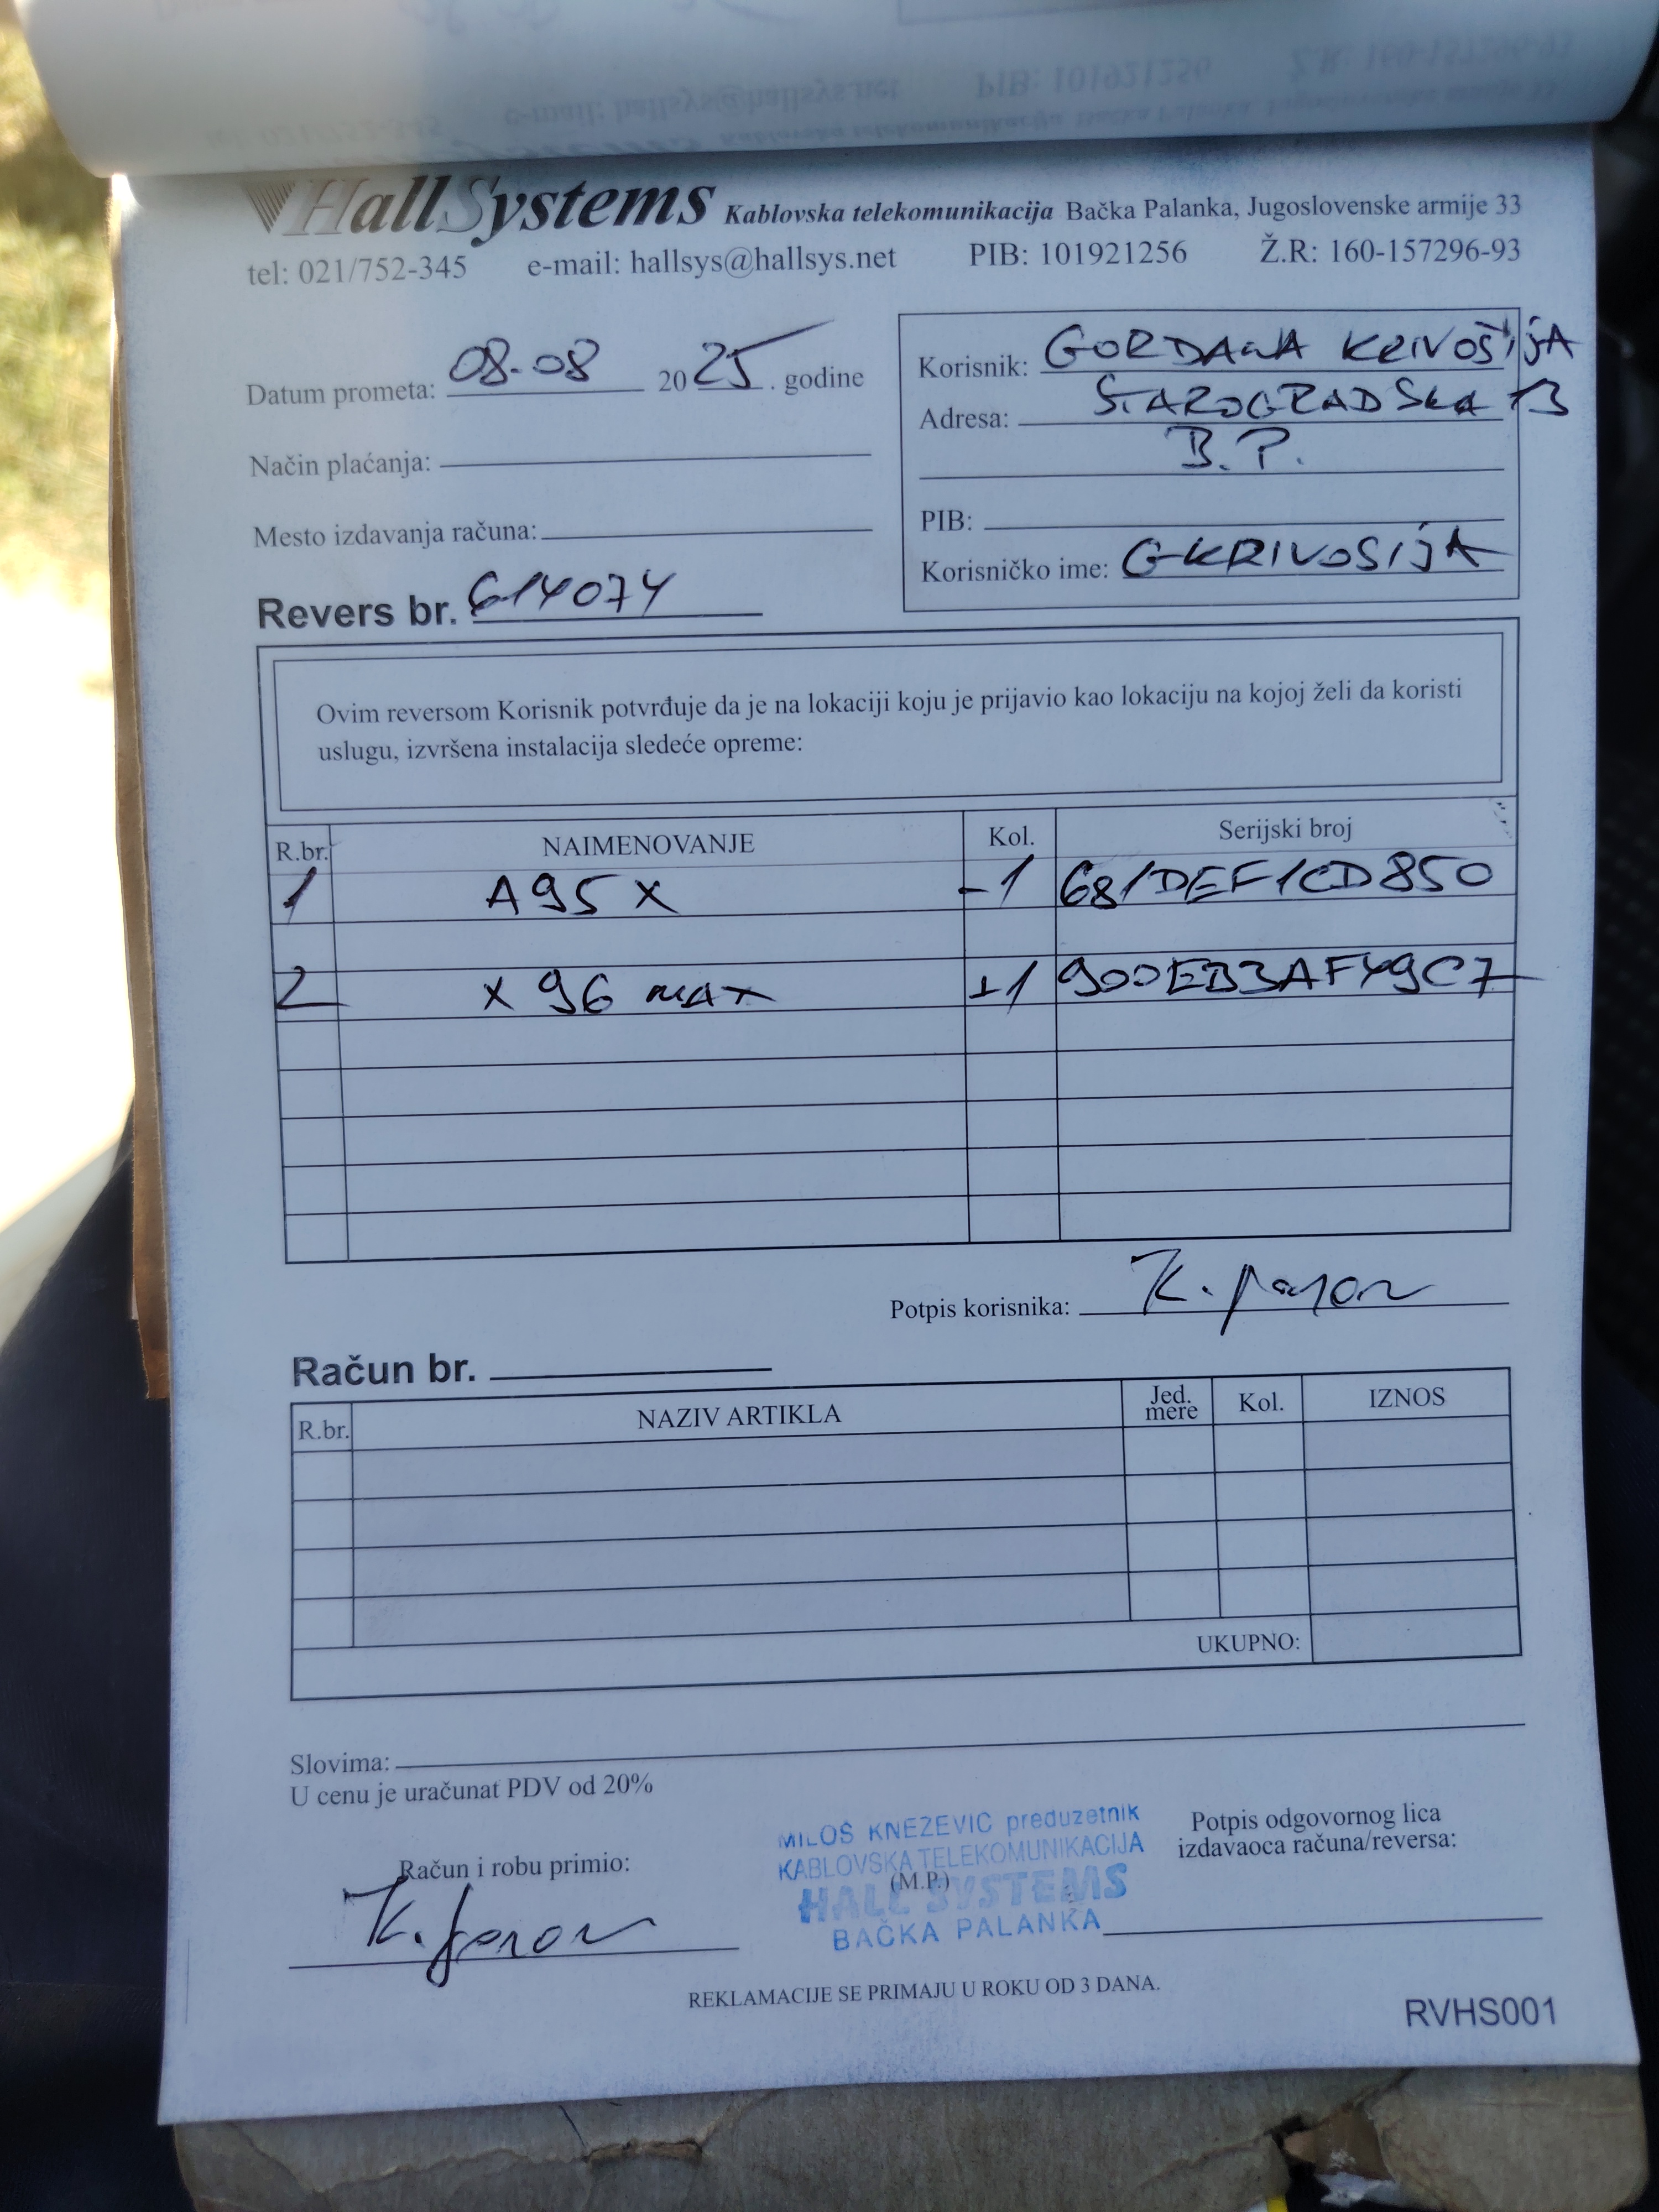 HallSystems Kablovska telekomunikacija Bačka Palanka, Jugoslovenske armije 33
tel: 021/752-345 e-mail: hallsys@hallsys.net PIB: 101921256 Ž.R: 160-157296-93
Datum prometa: 08-08 2025. godine
Način plaćanja:
Mesto izdavanja računa:
Revers br. 614074
Korisnik: GORDANA KRIVOŠIJA
Adresa: STAROGRADSKA 13
B.P.
PIB:
Korisničko ime: GKRIVOSIJA
Ovim reversom Korisnik potvrđuje da je na lokaciji koju je prijavio kao lokaciju na kojoj želi da koristi
uslugu, izvršena instalacija sledeće opreme:
R.br. NAIMENOVANJE Kol. Serijski broj
1 A95X -1 681DEF1CD850
2 X96 MAX +1 900EB3AF49C7
Potpis korisnika: K.
Račun br.
R.br. NAZIV ARTIKLA Jed. mere Kol. IZNOS
UKUPNO:
Slovima:
U cenu je uračunat PDV od 20%
Račun i robu primio:
K.
MILOŠ KNEZEVIC preduzetnik
KABLOVSKA TELEKOMUNIKACIJA
(M.P.)
HALL SYSTEMS
BAČKA PALANKA
Potpis odgovornog lica
izdavaoca računa/reversa:
REKLAMACIJE SE PRIMAJU U ROKU OD 3 DANA.
RVHS001